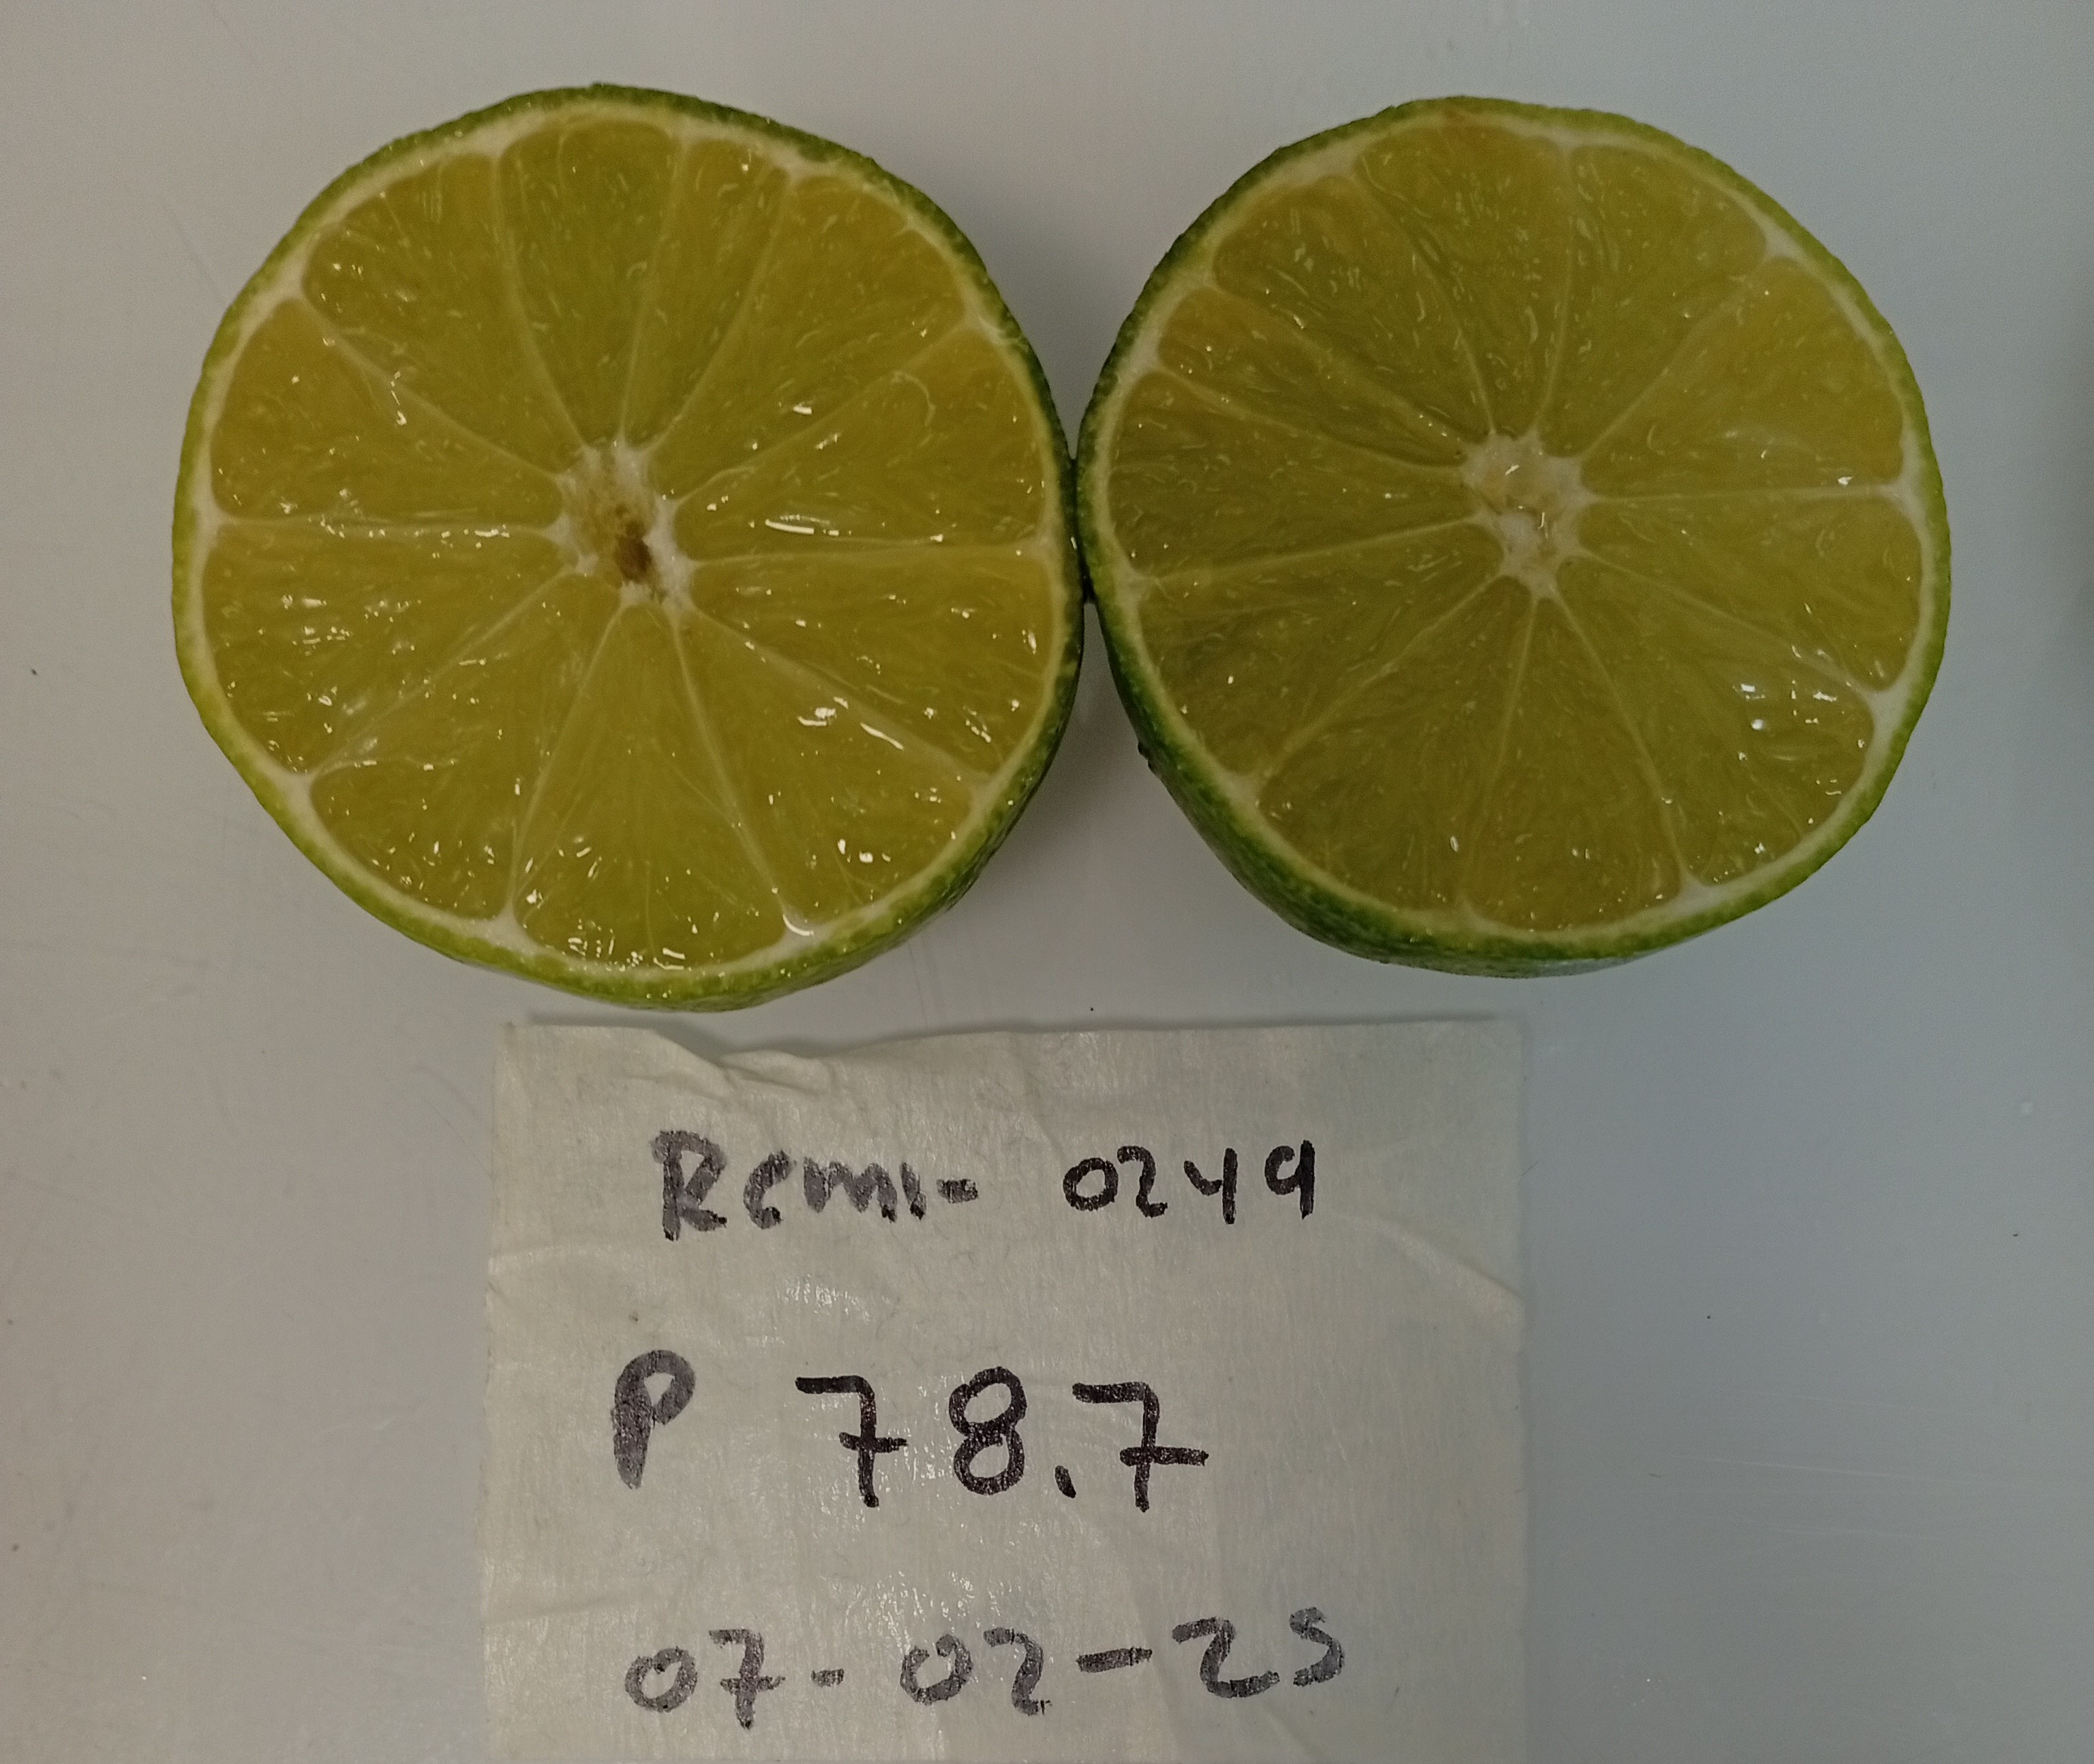 Remi- 0249
P 78.7
07-02-25